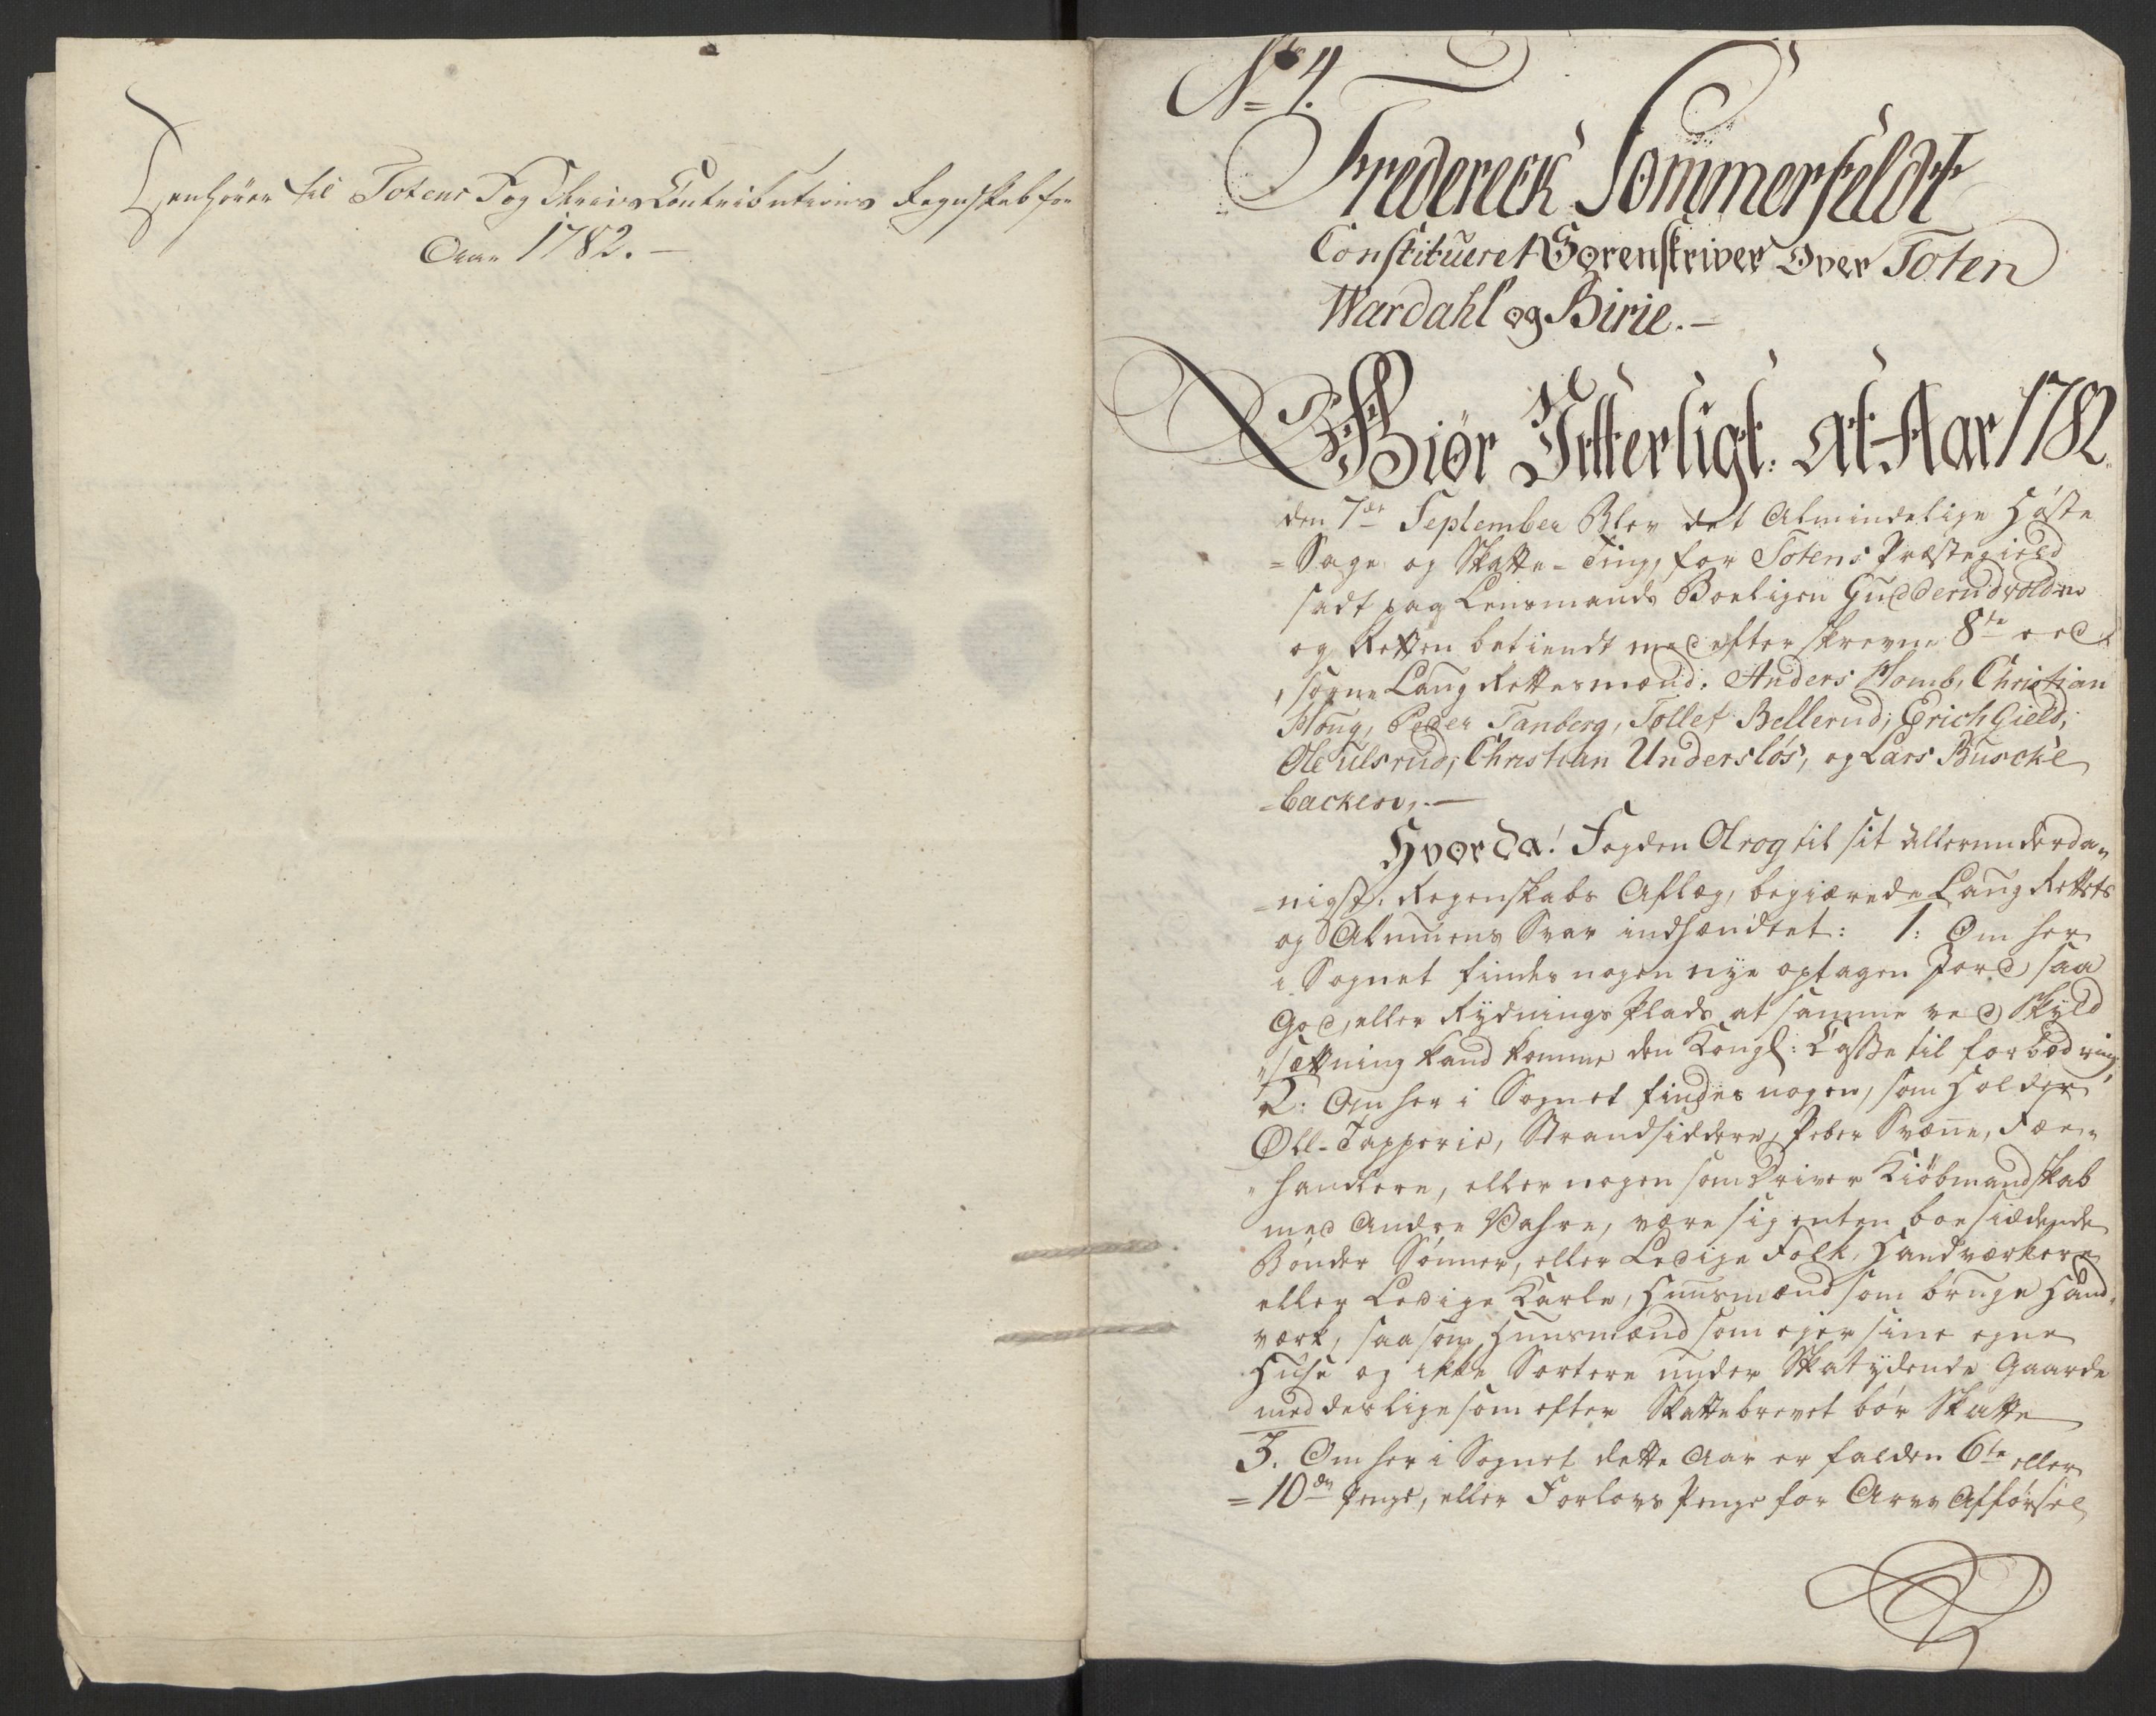 Henhører til Totens Fogderies Contributions Regnskab for
Aar 1782.
No 4.
Frederick Sommerfeldt
Constitueret Sorenskriver Over Toten
Wardahl og Birie.
Giør Vitterligt: At Aar 1782
den 7de September Blev det Almindelige Høste
= Sage og Skatte-Ting, for Totens Præstegield
sadt paa Lensmands Boeligen Gudderudvolden
og Retten betiendt med efterskrevne 8te eed
sorne Laug Rettesmænd: Anders Homb, Christian
Houg, Peder Tanberg, Tollef Bellerud, Erich Gield,
Ole Ulsrud, Christian Undersløs, og Lars Buscke
=backen,
Hvorda! Fogden Olrog til sit allerunderda„
=nigst. Regenskabs Aflæg, begiærede Laug Rettets
og Almuens Svar indhændtet: 1: Om her
i Sognet findes nogen nye optagen Jord saa
God, eller Rydnings Plads at samme ved Skyld
„sættning kand komme den Kongl: Casse til forbedring,
2: Om her i Sognet findes nogen, som Holder
Øll-Tapperie, Strandsiddere, Peber Svænne, Fæe„
„handlere, eller nogen som Driver Kiøbmandskab
med Andre Vahre, være sig enten boesiddende
Bønder Sønner, eller Ledige Folk, Handværkere
eller Ledige Karle, Huusmænd som bruge Hand„
værk, saasom Huusmænd som ejer sine egne
Huse og ikke Sortere under Skatydende Gaarde
med deslige som efter Skattebrevet bør Skatte
3. Om her i Sognet dette Aar er falden 6te eller
=10de Penge, eller Forlovs Penge for Arve Afførsel